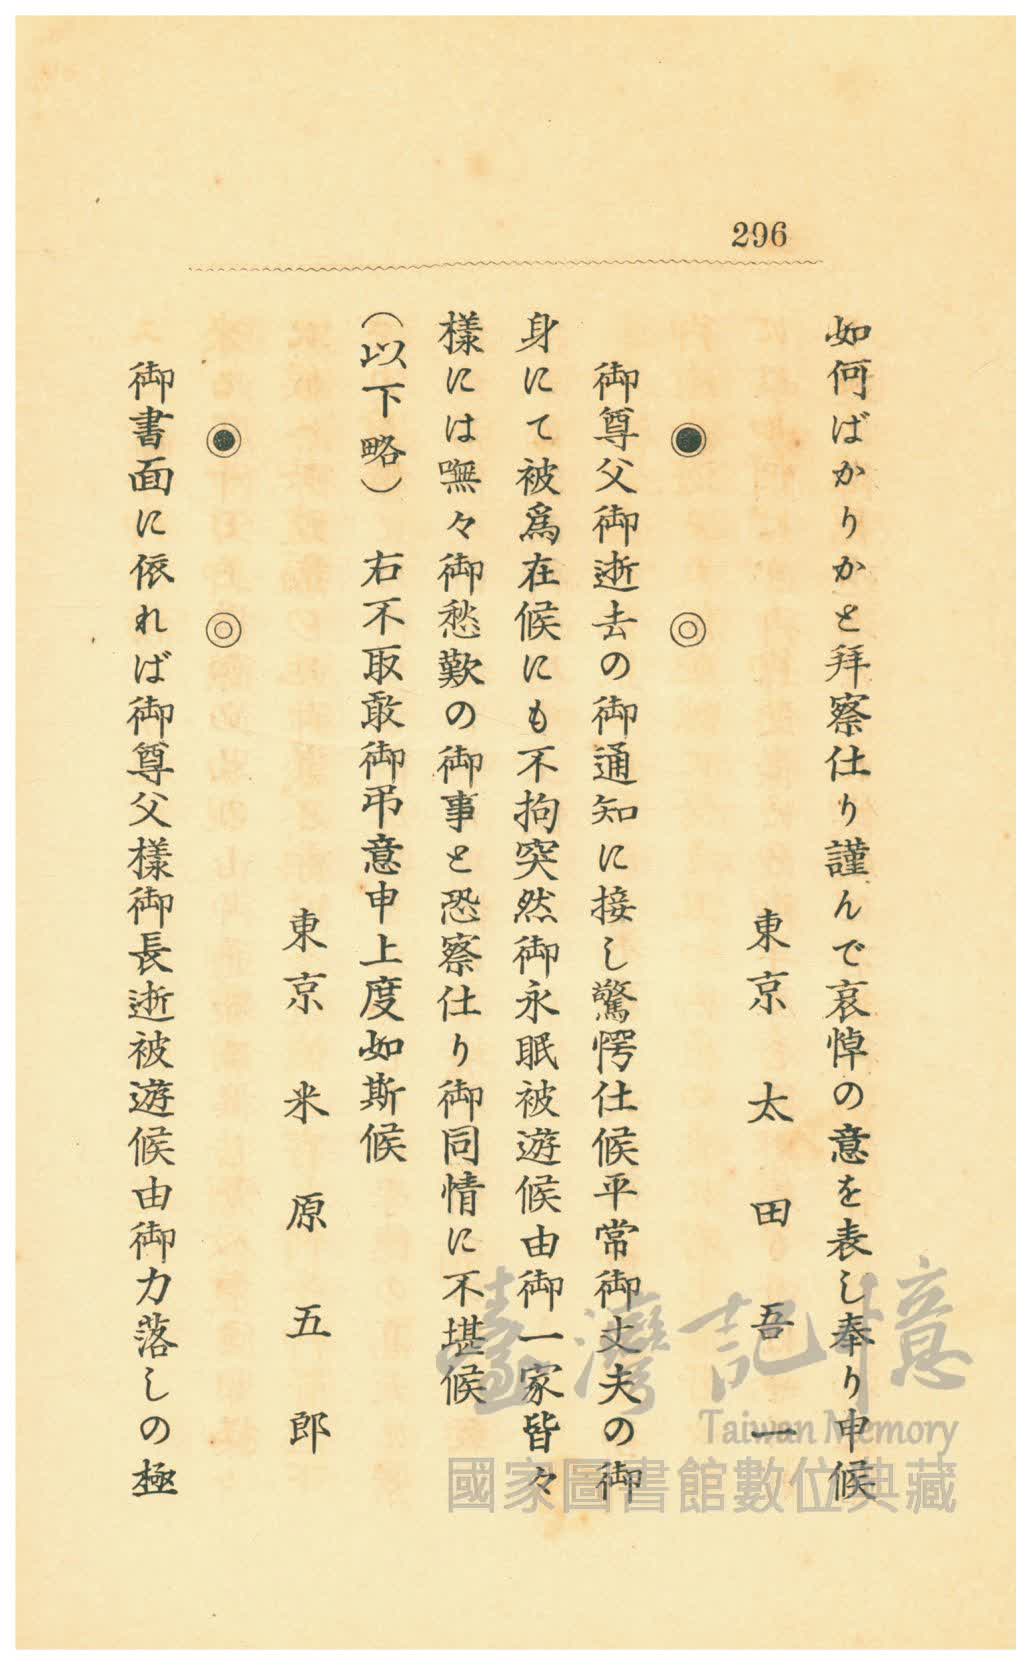 296
如何ばかりかと拜察仕り謹んで哀悼の意を表し奉り申候
東京 太田吾一
◉ ◎
御尊父御逝去の御通知に接し驚愕仕候平常御丈夫の御
身にて被爲在候にも不拘突然御永眠被遊候由御一家皆々
樣には嘸々御愁歎の御事と恐察仕り御同情に不堪候
(以下略) 右不取敢御弔意申上度如斯候
東京 米原五郎
◉ ◎
御書面に依れば御尊父樣御長逝被遊候由御力落しの極
臺灣記憶
Taiwan Memory
國家圖書館數位典藏